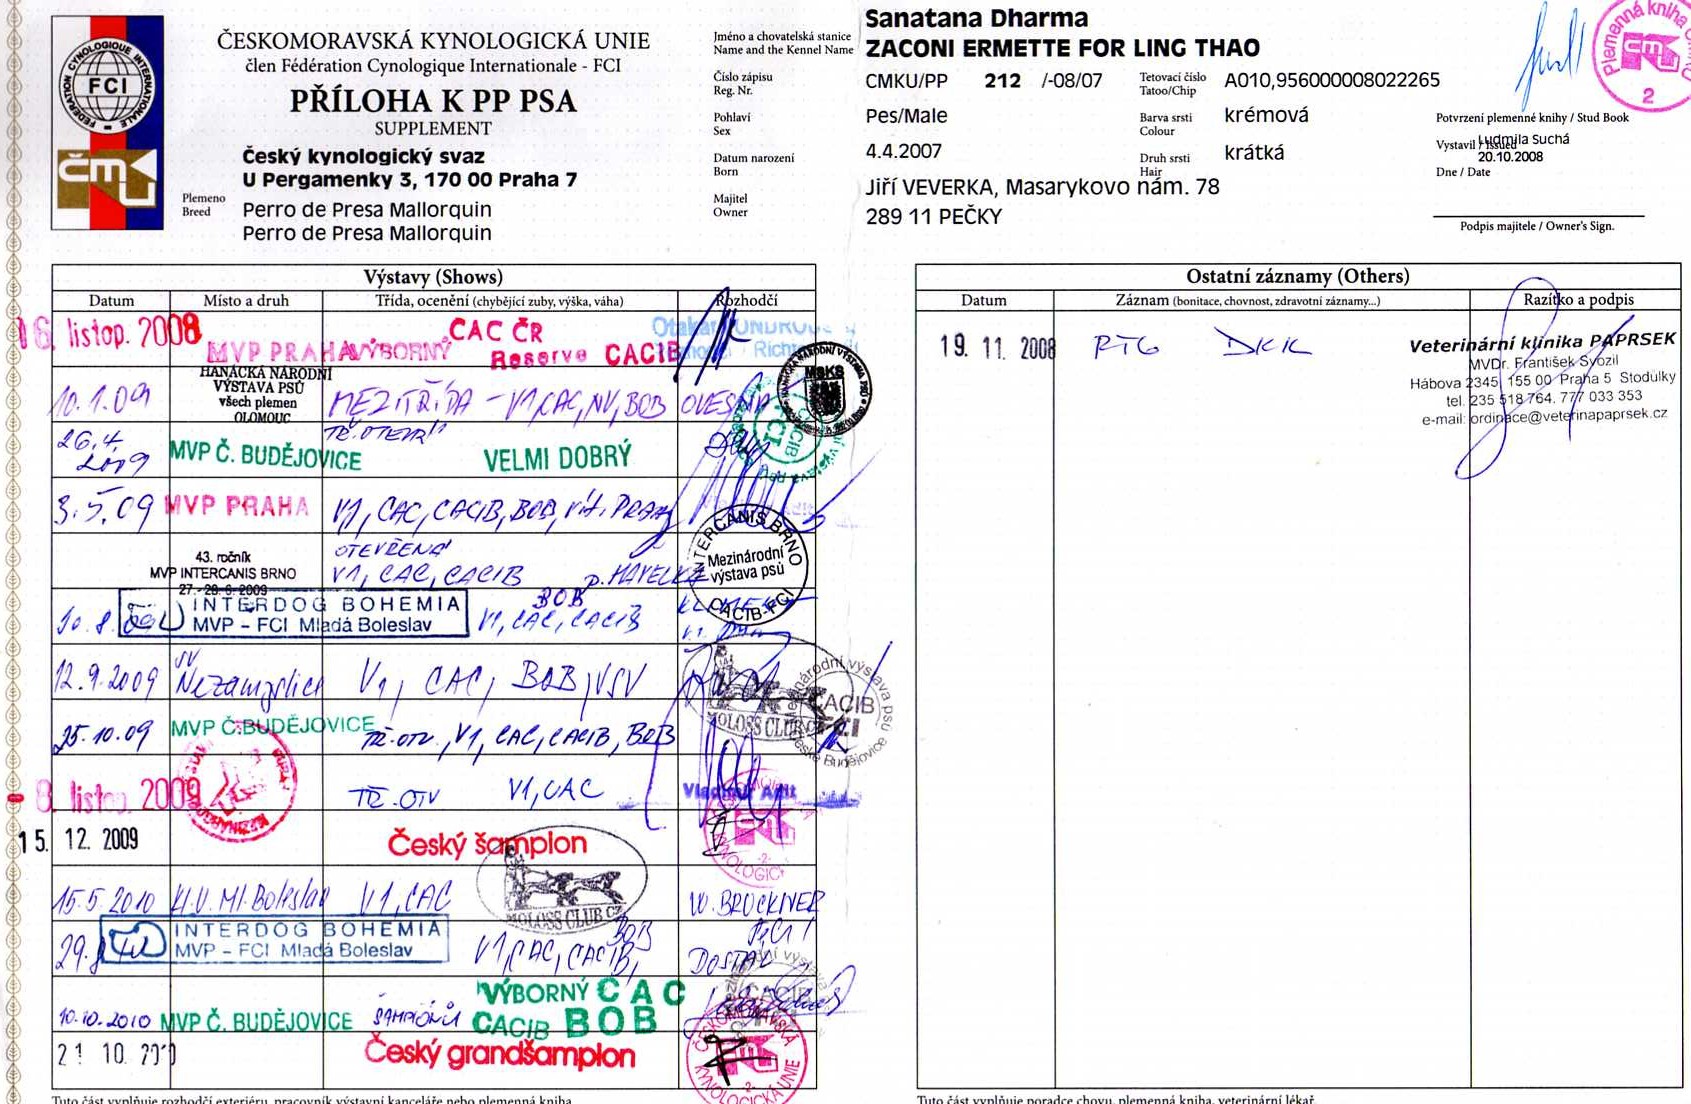 ČESKOMORAVSKÁ KYNOLOGICKÁ UNIE
člen Fédération Cynologique Internationale - FCI
PŘÍLOHA K PP PSA
SUPPLEMENT
FEDERATION CYNOLOGIQUE INTERNATIONALE
FCI
čmku
Český kynologický svaz
U Pergamenky 3, 170 00 Praha 7
Plemeno
Breed
Perro de Presa Mallorquin
Perro de Presa Mallorquin
Jméno a chovatelská stanice
Name and the Kennel Name
Sanatana Dharma
ZACONI ERMETTE FOR LING THAO
Číslo zápisu
Reg. Nr.
CMKU/PP 212 /-08/07
Tetovací číslo
Tatoo/Chip
A010,956000008022265
Pohlaví
Sex
Pes/Male
Barva srsti
Colour
krémová
Datum narození
Born
4.4.2007
Druh srsti
Hair
krátká
Majitel
Owner
Jiří VEVERKA, Masarykovo nám. 78
289 11 PEČKY
Plemenná kniha
2
Potvrzení plemenné knihy / Stud Book
Vystavil / Issued
Ludmila Suchá
20.10.2008
Dne / Date
Podpis majitele / Owner's Sign.
Výstavy (Shows)
Datum Místo a druh Třída, ocenění (chybějící zuby, výška, váha) Rozhodčí
16. listop. 2008 MVP PRAHA VÝBORNÝ CAC ČR
Reserve CACIB
Otakar
10.1.09 HANÁCKÁ NÁRODNÍ
VÝSTAVA PSŮ
všech plemen
OLOMOUC
MEZITŘÍDA - V1, CAC, NV, BOB
MSKS
26.4.
2009 MVP Č. BUDĚJOVICE TŘ. OTEVŘ. VELMI DOBRÝ
3.5.09 MVP PRAHA V1, CAC, CACIB, BOB,
43. ročník
MVP INTERCANIS BRNO
27.-28.6.2009
OTEVŘENÁ
V1, CAC, CACIB p. HAVELKA
INTERCANIS BRNO
Mezinárodní
výstava psů
CACIB-FCI
INTERDOG BOHEMIA
MVP - FCI Mladá Boleslav
BOB
V1, CAC, CACIB
12.9.2009 SV
Nezamyslice V1, CAC, BOB, VSV
MOLOSS CLUB CZ
25.10.09 MVP Č.BUDĚJOVICE TŘ. OTV, V1, CAC, CACIB, BOB
CACIB
České Budějovice
- 8. listop. 2009 TŘ. OTV V1, CAC
15. 12. 2009 Český šampion
MOLOSS CLUB CZ
15.5.2010 Kl.V. Ml. Boleslav V1, CAC W. BRUCKNER
INTERDOG BOHEMIA
MVP - FCI Mladá Boleslav
BOB
V1, CAC, CACIB, DOSTAL
10.10.2010 MVP Č. BUDĚJOVICE ŠAMPIONŮ VÝBORNÝ CAC
CACIB BOB
21 10. Český grandšampion
ČESKOMORAVSKÁ
KYNOLOGICKÁ UNIE
Tuto část vyplňuje rozhodčí exteriéru, pracovník výstavní kanceláře nebo plemenná kniha.
Ostatní záznamy (Others)
Datum Záznam (bonitace, chovnost, zdravotní záznamy...) Razítko a podpis
19. 11. 2008 RTG DKK
Veterinární klinika PAPRSEK
MVDr. František Svozil
Hábova 2345, 155 00 Praha 5 Stodůlky
tel. 235 518 764, 777 033 353
e-mail: ordinace@veterinapaprsek.cz
Tuto část vyplňuje poradce chovu, plemenná kniha, veterinární lékař.